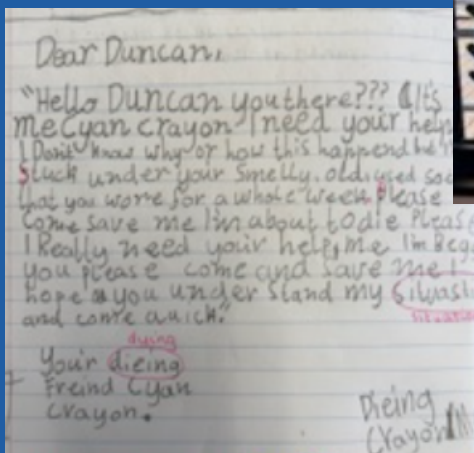 Dear Duncan,
"Hello Duncan you there??? It's
me Cyan crayon I need your help
I Don't know why or how this happend but
stuck under your smelly. old. used
that you wore for a whole week please
come save me I'm about to die Please
I Really need your help, me I'm
you please come and save me I
hope you under stand my
and come quick."
dying
Your dieing
Freind Cyan
Crayon.
Dieing
Crayon!!!